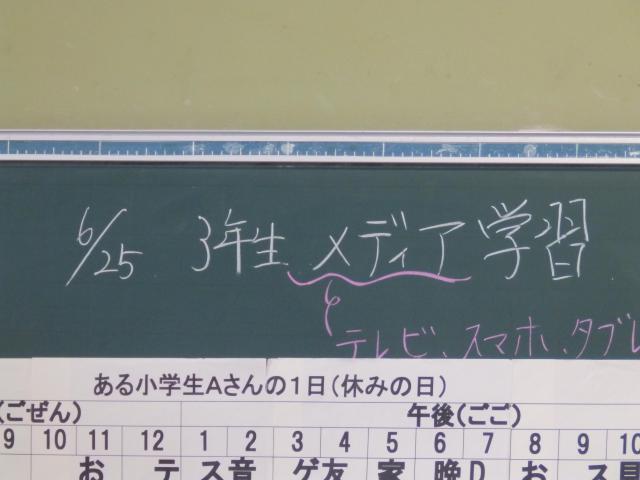 6/25 3年生 メディア学習
テレビ、スマホ、タブレ
ある小学生Aさんの1日(休みの日)
(ごぜん) 午後(ごご)
9 10 11 12 1 2 3 4 5 6 7 8 9 10
お テ ス 音 ゲ 友 家 晩 D お ス 見